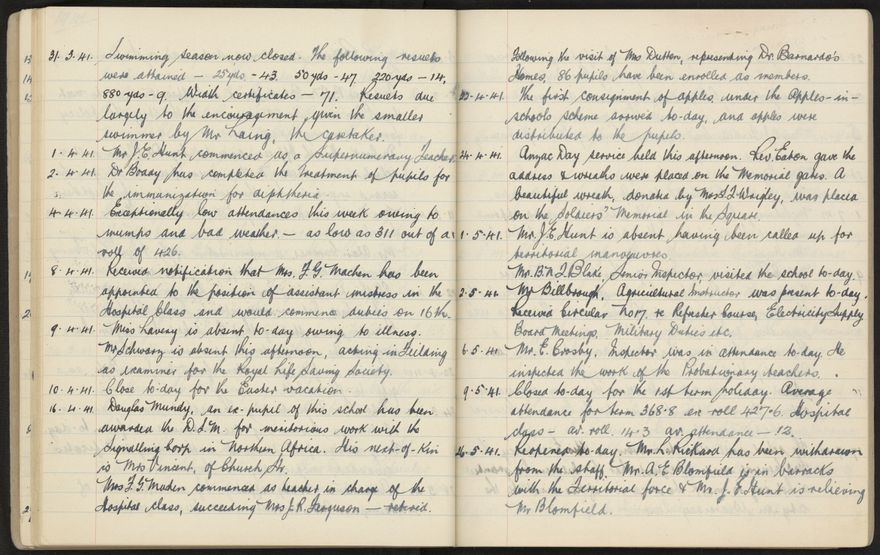 31.3.41. Swimming season now closed. The following results
were attained - 25yds - 43. 50yds - 47. 220yds - 14,
880yds - 9. Wealth certificates - 71. Results due
largely to the encouragement given the smaller
swimmer by Mr Laing, the caretaker.
1.4.41. Mr J.E. Hunt commenced as a Supernumerary Teacher.
2.4.41. Dr Brady has completed the treatment of pupils for
the immunization for diphtheria
4.4.41. Exceptionally low attendances this week owing to
mumps and bad weather - as low as 311 out of a
roll of 426.
8.4.41. Received notification that Mrs. F.G. Maden has been
appointed to the position of assistant mistress in the
Hospital Class and would commence duties on 16th.
9.4.41. Miss Lavery is absent to-day owing to illness.
Mr Schwarz is absent this afternoon, acting in Feilding
as examiner for the Royal Life Saving Society.
10.4.41. Close to-day for the Easter vacation.
16.4.41. Douglas Mundy, an ex-pupil of this school has been
awarded the D.S.M. for meritorious work with the
Signalling Corp in Northern Africa. His next-of-kin
is Mrs Vincent, of Church St.
Mrs F.G. Maden commenced as teacher in charge of the
Hospital class, succeeding Mrs J.R. Ferguson - retired.
Following the visit of Mrs Dutton, representing Dr. Barnardo's
Homes, 86 pupils have been enrolled as members.
23.4.41. The first consignment of apples under the apples-in-
schools scheme arrived to-day, and apples were
distributed to the pupils.
24.4.41. Anzac Day service held this afternoon. Rev. Eaton gave the
address & wreaths were placed on the Memorial gates. A
beautiful wreath, donated by Mrs Wrigley, was placed
on the Soldiers' Memorial in the Square.
1.5.41. Mr. J.E. Hunt is absent having been called up for
territorial manouvres.
Mr. Blake, Senior Inspector visited the school to-day.
2.5.41. Mr Billbrough, Agricultural Instructor was present to-day.
Received Circular No 17. re Refresher Course, Electricity Supply
Board Meetings, Military Duties etc.
6.5.41. Mr. E. Crosby, Inspector was in attendance to-day. He
inspected the work of the Probationary teachers.
9.5.41. Closed to-day for the 1st term holiday. Average
attendance for term 368.8 av roll 427.6. Hospital
class - av. roll. 14.3 av. attendance - 12.
26.5.41. Reopened to-day. Mr. L. Rickard has been withdrawn
from the staff. Mr. A.E. Blomfield is in barracks
with the Territorial force & Mr. J.E. Hunt is relieving
Mr Blomfield.